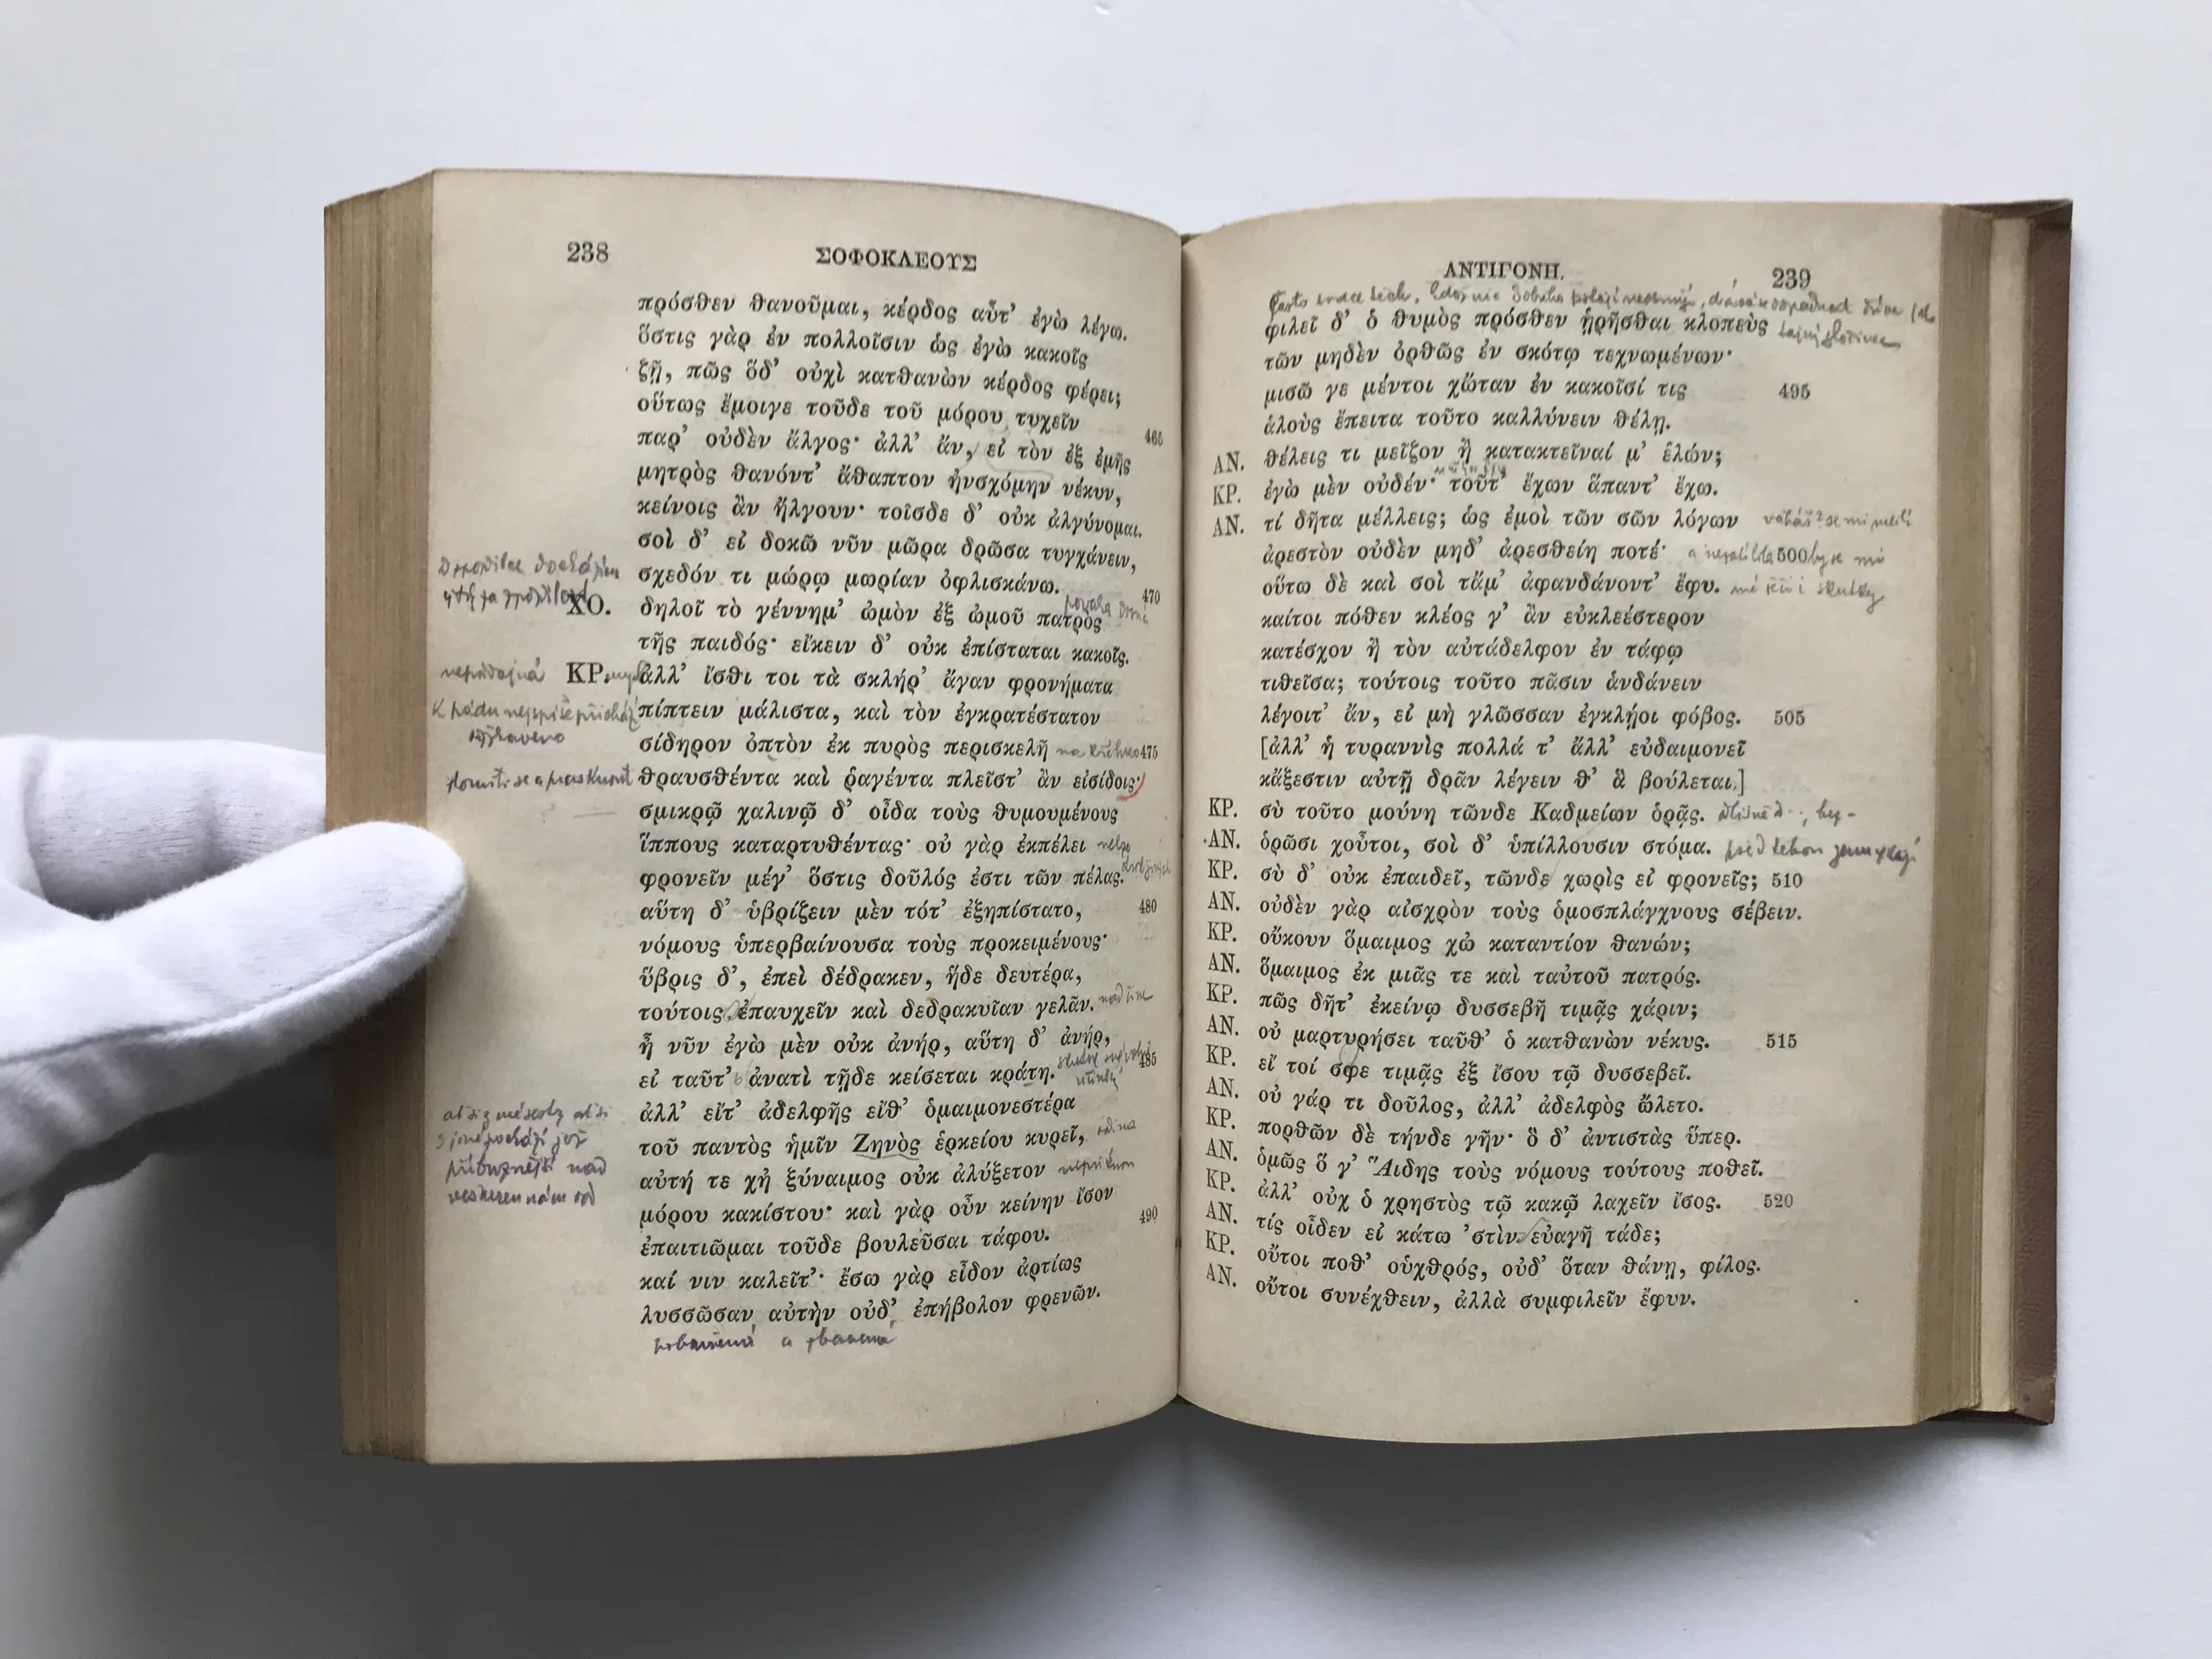 238
ΣΟΦΟΚΛΕΟΥΣ
πρόσθεν θανοῦμαι, κέρδος αὔτ’ ἐγὼ λέγω.
ὅστις γὰρ ἐν πολλοῖσιν ὡς ἐγὼ κακοῖς
ζῇ, πῶς ὅδ’ οὐχὶ κατθανὼν κέρδος φέρει;
οὕτως ἔμοιγε τοῦδε τοῦ μόρου τυχεῖν
παρ’ οὐδὲν ἄλγος· ἀλλ’ ἄν, εἰ τὸν ἐξ ἐμῆς 465
μητρὸς θανόντ’ ἄθαπτον ἠνσχόμην νέκυν,
κείνοις ἂν ἤλγουν· τοῖσδε δ’ οὐκ ἀλγύνομαι.
σοὶ δ’ εἰ δοκῶ νῦν μῶρα δρῶσα τυγχάνειν,
σχεδόν τι μώρῳ μωρίαν ὀφλισκάνω. 470
ΧΟ. δηλοῖ τὸ γέννημ’ ὠμὸν ἐξ ὠμοῦ πατρὸς
τῆς παιδός· εἴκειν δ’ οὐκ ἐπίσταται κακοῖς.
nepoddajná ΚΡ. ἀλλ’ ἴσθι τοι τὰ σκλήρ’ ἄγαν φρονήματα
K pádu nejspíše přichází πίπτειν μάλιστα, καὶ τὸν ἐγκρατέστατον
σίδηρον ὀπτὸν ἐκ πυρὸς περισκελῆ na křehko 475
θραυσθέντα καὶ ῥαγέντα πλεῖστ’ ἂν εἰσίδοις·
σμικρῷ χαλινῷ δ’ οἶδα τοὺς θυμουμένους
ἵππους καταρτυθέντας· οὐ γὰρ ἐκπέλει
φρονεῖν μέγ’ ὅστις δοῦλός ἐστι τῶν πέλας.
αὕτη δ’ ὑβρίζειν μὲν τότ’ ἐξηπίστατο, 480
νόμους ὑπερβαίνουσα τοὺς προκειμένους·
ὕβρις δ’, ἐπεὶ δέδρακεν, ἥδε δευτέρα,
τούτοις ἐπαυχεῖν καὶ δεδρακυῖαν γελᾶν.
ἦ νῦν ἐγὼ μὲν οὐκ ἀνήρ, αὕτη δ’ ἀνήρ,
εἰ ταῦτ’ ἀνατὶ τῇδε κείσεται κράτη. 485
ἀλλ’ εἴτ’ ἀδελφῆς εἴθ’ ὁμαιμονεστέρα
τοῦ παντὸς ἡμῖν Ζηνὸς ἑρκείου κυρεῖ,
αὐτή τε χἠ ξύναιμος οὐκ ἀλύξετον
příbuznější nad
μόρου κακίστου· καὶ γὰρ οὖν κείνην ἴσον
ἐπαιτιῶμαι τοῦδε βουλεῦσαι τάφου. 490
καί νιν καλεῖτ’· ἔσω γὰρ εἶδον ἀρτίως
λυσσῶσαν αὐτὴν οὐδ’ ἐπήβολον φρενῶν.
ΑΝΤΙΓΟΝΗ.
239
φιλεῖ δ’ ὁ θυμὸς πρόσθεν ᾑρῆσθαι κλοπεὺς
τῶν μηδὲν ὀρθῶς ἐν σκότῳ τεχνωμένων·
μισῶ γε μέντοι χὤταν ἐν κακοῖσί τις 495
ἁλοὺς ἔπειτα τοῦτο καλλύνειν θέλῃ.
ΑΝ. θέλεις τι μεῖζον ἢ κατακτεῖναί μ’ ἑλών;
ΚΡ. ἐγὼ μὲν οὐδέν· τοῦτ’ ἔχων ἅπαντ’ ἔχω.
ΑΝ. τί δῆτα μέλλεις; ὡς ἐμοὶ τῶν σῶν λόγων
ἀρεστὸν οὐδὲν μηδ’ ἀρεσθείη ποτέ· 500
οὕτω δὲ καὶ σοὶ τἄμ’ ἀφανδάνοντ’ ἔφυ.
καίτοι πόθεν κλέος γ’ ἂν εὐκλεέστερον
κατέσχον ἢ τὸν αὐτάδελφον ἐν τάφῳ
τιθεῖσα; τούτοις τοῦτο πᾶσιν ἁνδάνειν
λέγοιτ’ ἄν, εἰ μὴ γλῶσσαν ἐγκλῄοι φόβος. 505
[ἀλλ’ ἡ τυραννὶς πολλά τ’ ἄλλ’ εὐδαιμονεῖ
κἄξεστιν αὐτῇ δρᾶν λέγειν θ’ ἃ βούλεται.]
ΚΡ. σὺ τοῦτο μούνη τῶνδε Καδμείων ὁρᾷς.
ΑΝ. ὁρῶσι χοὖτοι, σοὶ δ’ ὑπίλλουσιν στόμα.
ΚΡ. σὺ δ’ οὐκ ἐπαιδεῖ, τῶνδε χωρὶς εἰ φρονεῖς; 510
ΑΝ. οὐδὲν γὰρ αἰσχρὸν τοὺς ὁμοσπλάγχνους σέβειν.
ΚΡ. οὔκουν ὅμαιμος χὠ καταντίον θανών;
ΑΝ. ὅμαιμος ἐκ μιᾶς τε καὶ ταὐτοῦ πατρός.
ΚΡ. πῶς δῆτ’ ἐκείνῳ δυσσεβῆ τιμᾷς χάριν;
ΑΝ. οὐ μαρτυρήσει ταῦθ’ ὁ κατθανὼν νέκυς. 515
ΚΡ. εἴ τοί σφε τιμᾷς ἐξ ἴσου τῷ δυσσεβεῖ.
ΑΝ. οὐ γάρ τι δοῦλος, ἀλλ’ ἀδελφὸς ὤλετο.
ΚΡ. πορθῶν δὲ τήνδε γῆν· ὁ δ’ ἀντιστὰς ὕπερ.
ΑΝ. ὁμῶς ὅ γ’ Ἅιδης τοὺς νόμους τούτους ποθεῖ.
ΚΡ. ἀλλ’ οὐχ ὁ χρηστὸς τῷ κακῷ λαχεῖν ἴσος. 520
ΑΝ. τίς οἶδεν εἰ κάτω ’στὶν εὐαγῆ τάδε;
ΚΡ. οὔτοι ποθ’ οὑχθρός, οὐδ’ ὅταν θάνῃ, φίλος.
ΑΝ. οὔτοι συνέχθειν, ἀλλὰ συμφιλεῖν ἔφυν.